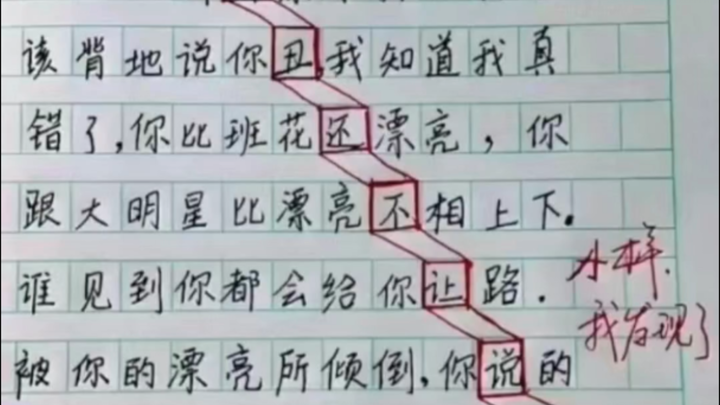 该背地说你丑,我知道我真
错了,你比班花还漂亮,你
跟大明星比漂亮不相上下。
谁见到你都会给你让路.
被你的漂亮所倾倒,你说的
小样.
我发现了